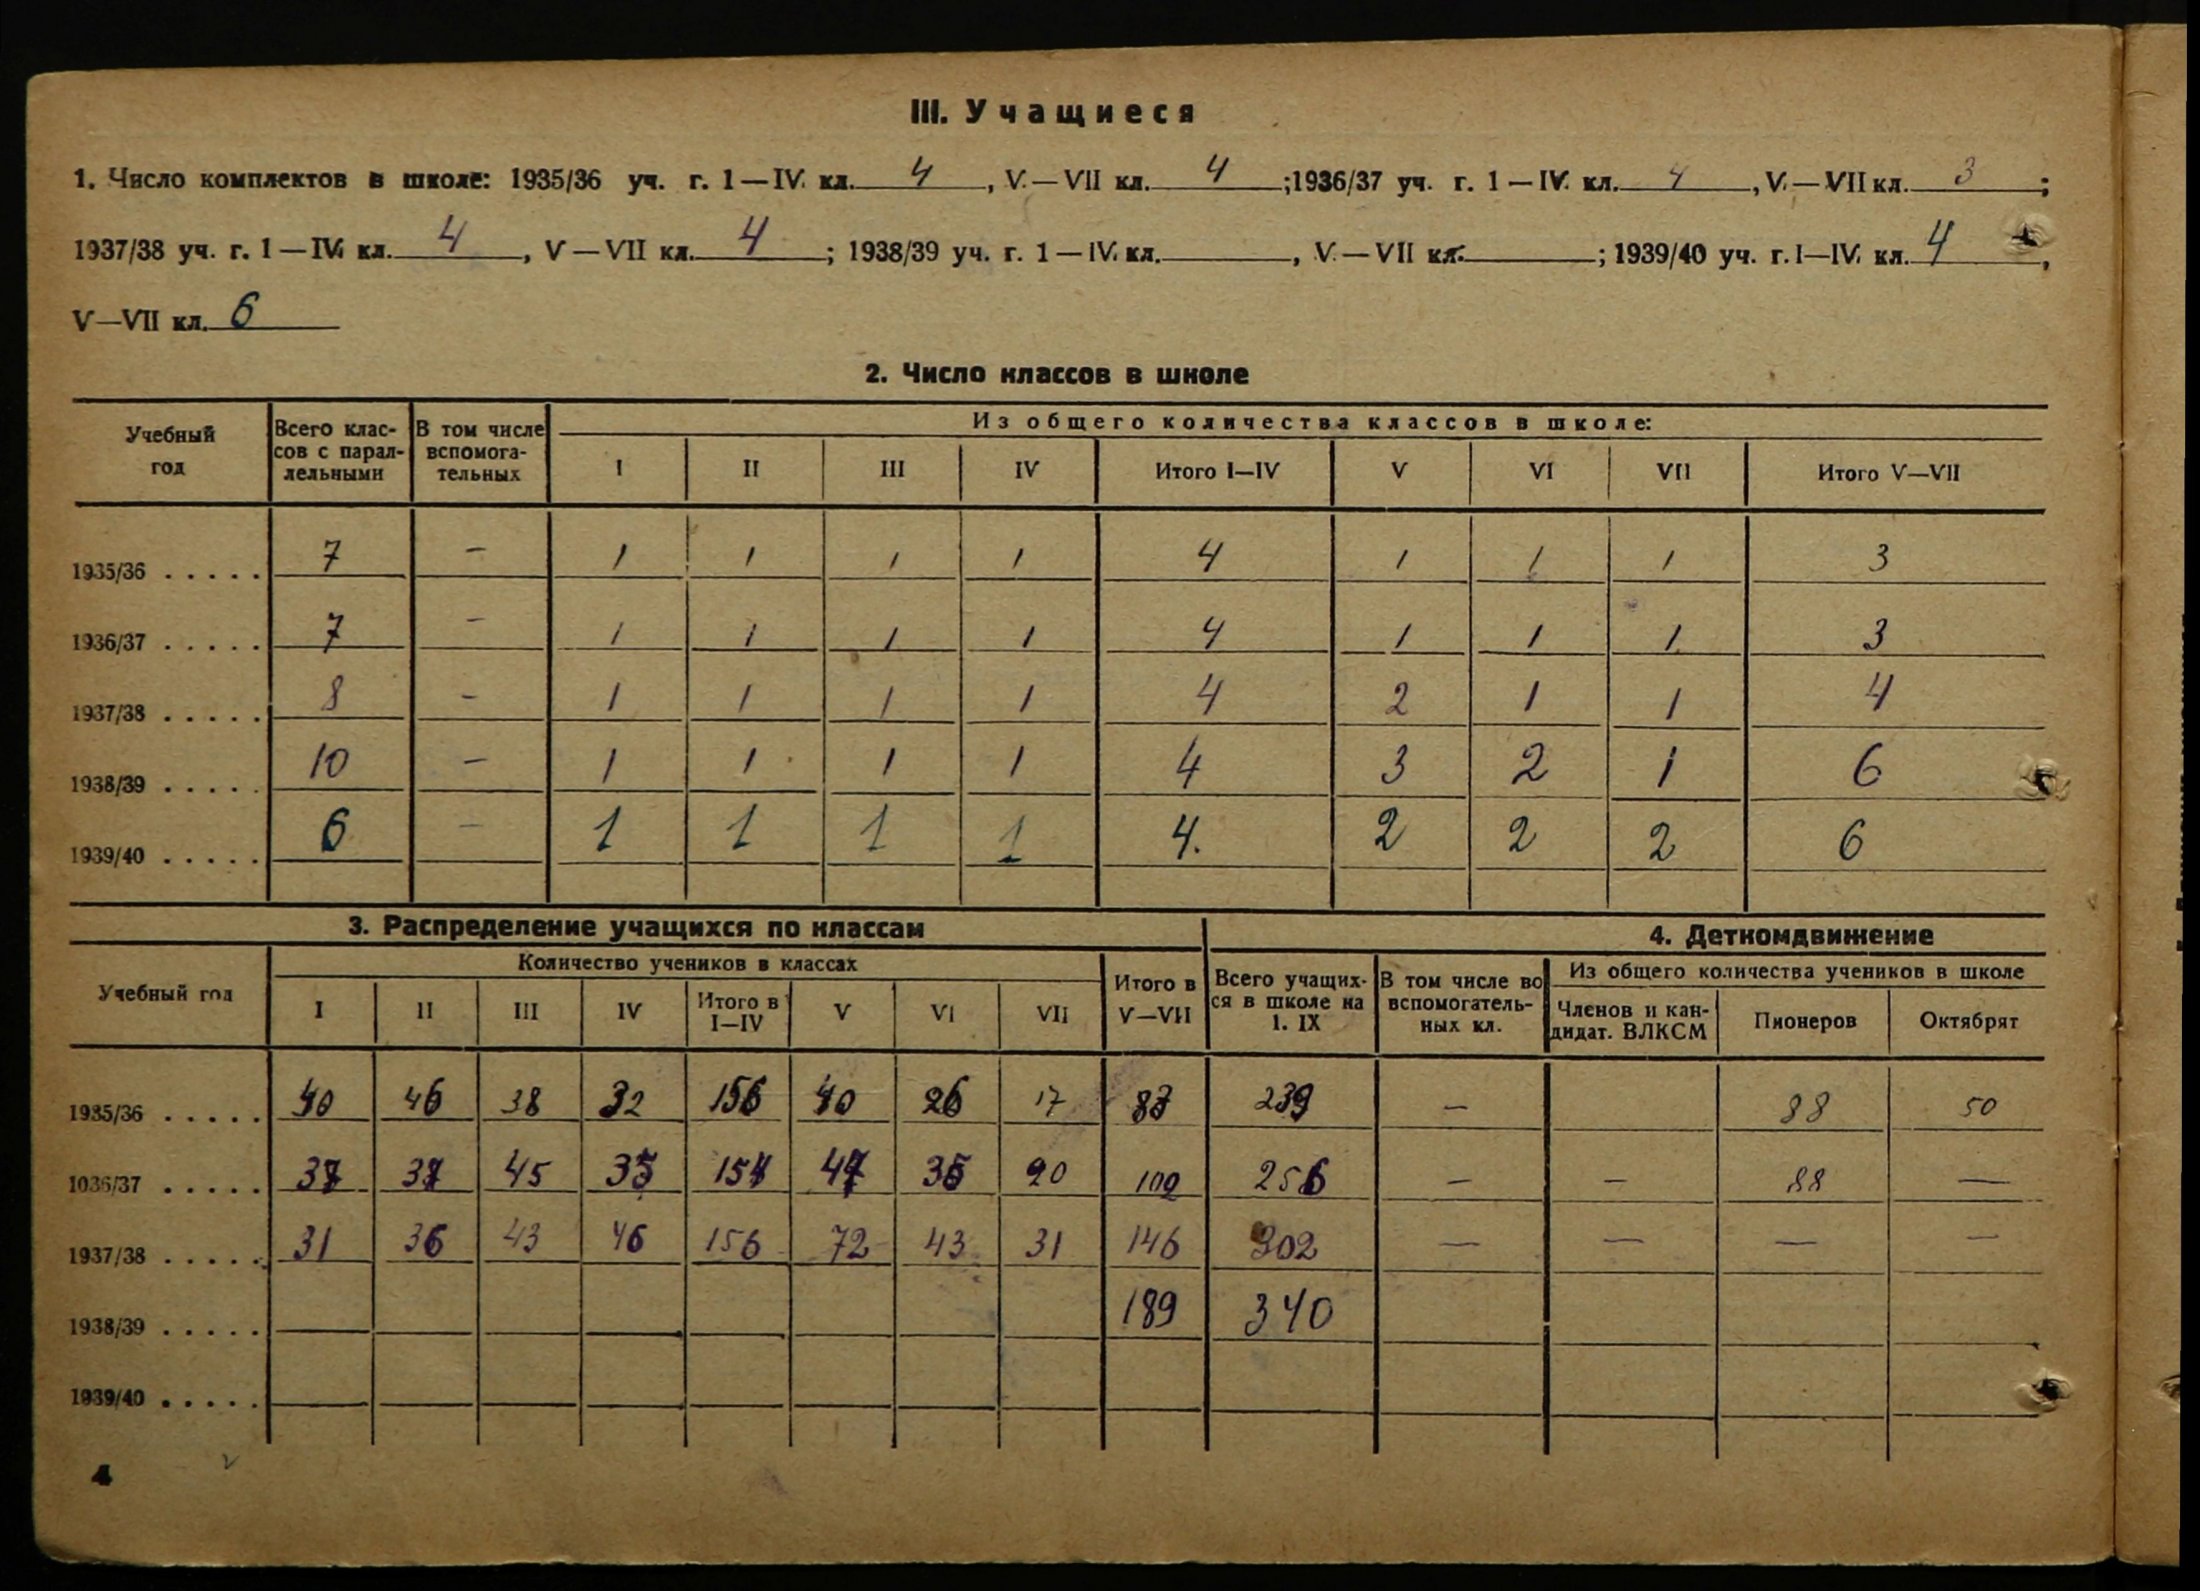 III. Учащиеся
1. Число комплектов в школе: 1935/36 уч. г. 1—IV. кл. 4, V.—VII кл. 4; 1936/37 уч. г. 1—IV. кл. 4, V.—VII кл. 3;
1937/38 уч. г. 1—IV. кл. 4, V—VII кл. 4; 1938/39 уч. г. 1—IV. кл. , V.—VII кл. ; 1939/40 уч. г. I—IV. кл. 4,
V—VII кл. 6
2. Число классов в школе
Учебный год | Всего классов с параллельными | В том числе вспомогательных | Из общего количества классов в школе:
I | II | III | IV | Итого I—IV | V | VI | VII | Итого V—VII
1935/36 ..... 7 — 1 1 1 1 4 1 1 1 3
1936/37 ..... 7 — 1 1 1 1 4 1 1 1 3
1937/38 ..... 8 — 1 1 1 1 4 2 1 1 4
1938/39 ..... 10 — 1 1 1 1 4 3 2 1 6
1939/40 ..... 6 — 1 1 1 1 4. 2 2 2 6
3. Распределение учащихся по классам
4. Деткомдвижение
Учебный год | Количество учеников в классах | Итого в V—VII | Всего учащихся в школе на 1. IX | В том числе во вспомогательных кл. | Из общего количества учеников в школе
I | II | III | IV | Итого в I—IV | V | VI | VII | Членов и кандидат. ВЛКСМ | Пионеров | Октябрят
1935/36 ..... 40 46 38 32 156 40 26 17 83 239 — 88 50
1036/37 ..... 37 37 45 35 154 47 35 20 102 256 — — 88 —
1937/38 ..... 31 36 43 46 156 72 43 31 146 302 — — — —
1938/39 ..... 189 340
1939/40 .....
4